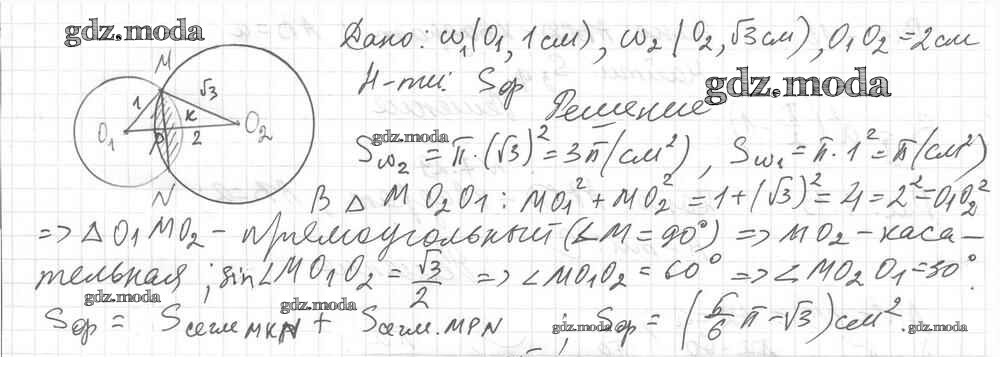 gdz.moda
Дано: ω₁(O₁, 1 см), ω₂(O₂, √3 см), O₁O₂ = 2 см
Н-ти: Sф
gdz.moda
Решение
M
√3
1
K
O₁
P
2
O₂
N
gdz.moda
Sω₂ = π·(√3)² = 3π(см²), Sω₁ = π·1² = π(см²)
В △MO₂O₁: MO₁² + MO₂² = 1+(√3)² = 4 = 2² = O₁O₂²
=> △O₁MO₂ - прямоугольный (∠M = 90°) => MO₂ - каса-
тельная; sin∠MO₁O₂ = √3/2 => ∠MO₁O₂ = 60° => ∠MO₂O₁ = 30°.
gdz.moda
gdz.moda
Sф = Sсегм MKN + Sсегм. MPN ; Sф = (5/6 π - √3) см².
gdz.moda
gdz.moda